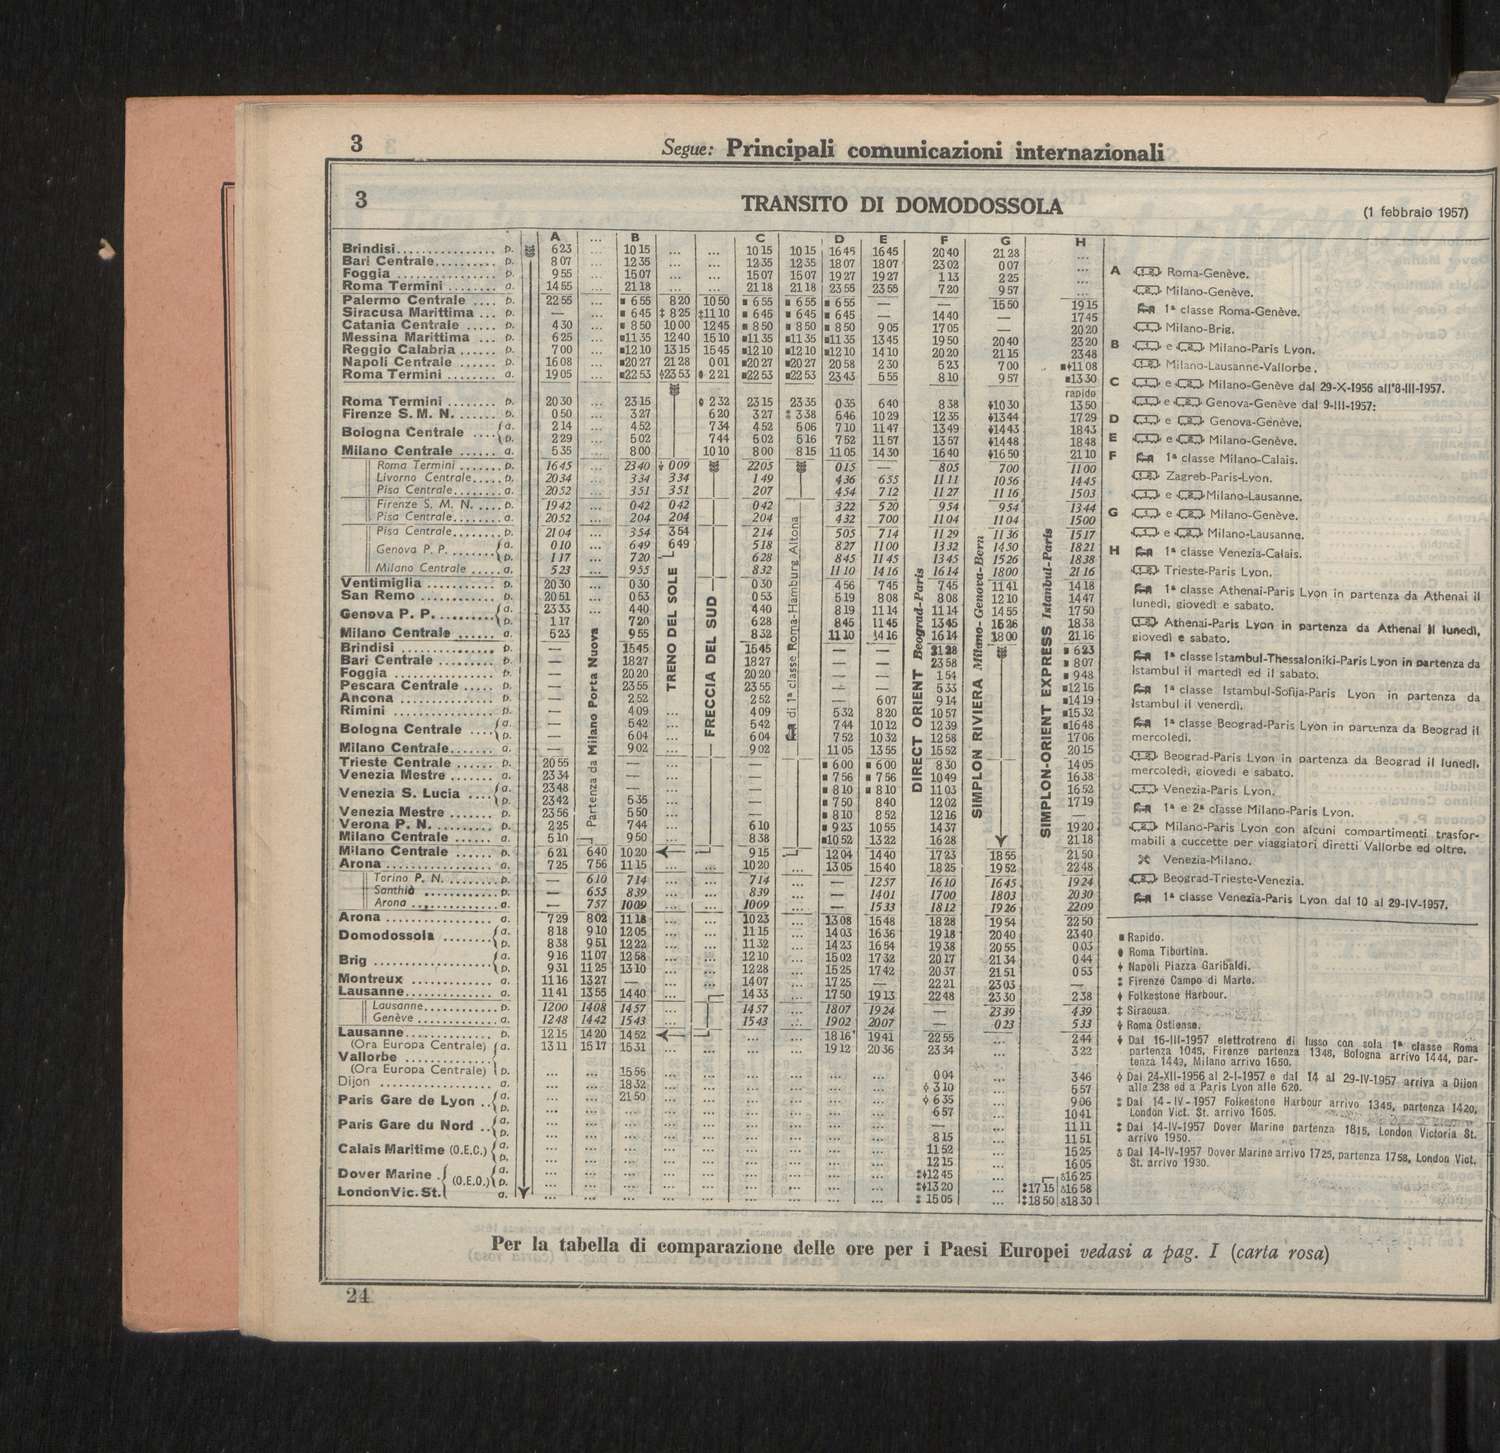 3
Segue: Principali comunicazioni internazionali
3
TRANSITO DI DOMODOSSOLA
(1 febbraio 1957)
A ... B ... ... C ... D E F G H
Brindisi p. 6 23 ... 10 15 ... ... 10 15 10 15 16 45 16 45 20 40 21 28 ...
Bari Centrale p. 8 07 ... 12 35 ... ... 12 35 12 35 18 07 18 07 23 02 0 07 ...
Foggia p. 9 55 ... 15 07 ... ... 15 07 15 07 19 27 19 27 1 13 2 25 ...
Roma Termini a. 14 55 ... 21 18 ... ... 21 18 21 18 23 55 23 55 7 20 9 57 ...
Palermo Centrale p. 22 55 ... ▪ 6 55 8 20 10 50 ▪ 6 55 ▪ 6 55 ▪ 6 55 — — 15 50 19 15
Siracusa Marittima p. — ... ▪ 6 45 ‡ 8 25 ‡11 10 ▪ 6 45 ▪ 6 45 ▪ 6 45 — 14 40 — 17 45
Catania Centrale p. 4 30 ... ▪ 8 50 10 00 12 45 ▪ 8 50 ▪ 8 50 ▪ 8 50 9 05 17 05 — 20 20
Messina Marittima p. 6 25 ... ▪11 35 12 40 15 10 ▪11 35 ▪11 35 ▪11 35 13 45 19 50 20 40 23 20
Reggio Calabria p. 7 00 ... ▪12 10 13 15 15 45 ▪12 10 ▪12 10 ▪12 10 14 10 20 20 21 15 23 48
Napoli Centrale p. 16 08 ... ▪20 27 21 28 0 01 ▪20 27 ▪20 27 20 58 2 30 5 23 7 00 11 08
Roma Termini a. 19 05 ... ▪22 53 23 53 2 21 ▪22 53 ▪22 53 23 43 5 55 8 10 9 57 ▪13 30
rapido
Roma Termini p. 20 30 ... 23 15 2 32 23 15 23 35 0 35 6 40 8 38 10 30 13 50
Firenze S. M. N. p. 0 50 ... 3 27 6 20 3 27 3 38 6 46 10 29 12 35 13 44 17 29
Bologna Centrale a. 2 14 ... 4 52 7 34 4 52 5 06 7 10 11 47 13 49 14 43 18 43
p. 2 29 ... 5 02 7 44 5 02 5 16 7 52 11 57 13 57 14 48 18 48
Milano Centrale a. 5 35 ... 8 00 10 10 8 00 8 15 11 05 14 30 16 40 16 50 21 10
Roma Termini p. 16 45 ... 23 40 0 09 22 05 0 15 — 8 05 7 00 11 00
Livorno Centrale p. 20 34 ... 3 34 3 34 1 49 4 36 6 55 11 11 10 56 14 45
Pisa Centrale a. 20 52 ... 3 51 3 51 2 07 4 54 7 12 11 27 11 16 15 03
Firenze S. M. N. p. 19 42 ... 0 42 0 42 0 42 3 22 5 20 9 54 9 54 13 44
Pisa Centrale a. 20 52 ... 2 04 2 04 2 04 4 32 7 00 11 04 11 04 15 00
Pisa Centrale p. 21 04 ... 3 54 3 54 2 14 5 05 7 14 11 29 11 36 15 17
Genova P. P. a. 0 10 ... 6 49 6 49 5 18 8 27 11 00 13 32 14 50 18 21
p. 1 17 ... 7 20 6 28 8 45 11 45 13 45 15 26 18 38
Milano Centrale a. 5 23 ... 9 55 8 32 11 10 14 16 16 14 18 00 21 16
Ventimiglia p. 20 30 ... 0 30 0 30 4 56 7 45 7 45 11 41 14 18
San Remo p. 20 51 ... 0 53 0 53 5 19 8 08 8 08 12 10 14 47
Genova P. P. a. 23 33 ... 4 40 4 40 8 19 11 14 11 14 14 55 17 50
p. 1 17 7 20 6 28 8 45 11 45 13 45 15 26 18 38
Milano Centrale a. 5 23 9 55 8 32 11 10 14 16 16 14 18 00 21 16
Brindisi p. — 15 45 15 45 — — 21 28 ▪ 6 23
Bari Centrale p. — 18 27 18 27 — — 23 58 ▪ 8 07
Foggia p. — 20 20 20 20 — — 1 54 ▪ 9 48
Pescara Centrale p. — 23 55 23 55 — — 5 33 ▪12 16
Ancona p. — 2 52 2 52 — 6 07 9 14 ▪14 19
Rimini p. — 4 09 ... 4 09 5 32 8 20 10 57 ▪15 32
Bologna Centrale a. — 5 42 ... 5 42 7 44 10 12 12 39 ▪16 48
p. — 6 04 ... 6 04 7 52 10 32 12 58 17 06
Milano Centrale a. — 9 02 ... 9 02 11 05 13 55 15 52 20 15
Trieste Centrale p. 20 55 — ... — ▪ 6 00 ▪ 6 00 8 30 14 05
Venezia Mestre a. 23 34 — ... — ▪ 7 56 ▪ 7 56 10 49 16 38
Venezia S. Lucia a. 23 48 — ... — ▪ 8 10 ▪ 8 10 11 03 16 52
p. 23 42 5 35 ... ▪ 7 50 8 40 12 02 17 19
Venezia Mestre p. 23 56 5 50 ... ▪ 8 10 8 52 12 16 —
Verona P. N. p. 2 25 7 44 ... 6 10 ▪ 9 23 10 55 14 37 19 20
Milano Centrale a. 5 10 9 50 ... 8 38 ▪10 52 13 22 16 28 21 18
Milano Centrale p. 6 21 6 40 10 20 9 15 12 04 14 40 17 23 18 55 21 50
Arona a. 7 25 7 56 11 15 ... ... 10 20 ... 13 05 15 40 18 25 19 52 22 48
Torino P. N. p. — 6 10 7 14 ... ... 7 14 ... — 12 57 16 10 16 45 19 24
Santhià p. — 6 55 8 39 ... ... 8 39 ... — 14 01 17 00 18 03 20 30
Arona a. — 7 57 10 09 ... ... 10 09 ... — 15 33 18 12 19 26 22 09
Arona a. 7 29 8 02 11 18 ... ... 10 23 ... 13 08 15 48 18 28 19 54 22 50
Domodossola a. 8 18 9 10 12 05 ... ... 11 15 ... 14 03 16 36 19 18 20 40 23 40
p. 8 38 9 51 12 22 ... ... 11 32 ... 14 23 16 54 19 38 20 55 0 03
Brig a. 9 16 11 07 12 58 ... ... 12 10 ... 15 02 17 32 20 17 21 34 0 44
p. 9 31 11 25 13 10 ... ... 12 28 ... 15 25 17 42 20 37 21 51 0 53
Montreux a. 11 16 13 27 — ... ... 14 07 ... 17 25 — 22 21 23 03 —
Lausanne a. 11 41 13 55 14 40 ... 14 33 ... 17 50 19 13 22 48 23 30 2 38
Lausanne p. 12 00 14 08 14 57 ... 14 57 ... 18 07 19 24 — 23 39 4 39
Genève a. 12 48 14 42 15 43 ... 15 43 ... 19 02 20 07 — 0 23 5 33
Lausanne p. 12 15 14 20 14 52 ... ... 18 16 19 41 22 55 ... 2 44
(Ora Europa Centrale) a. 13 11 15 17 15 31 ... ... ... ... 19 12 20 36 23 34 ... 3 22
Vallorbe
(Ora Europa Centrale) p. ... ... 15 56 ... ... ... ... ... ... 0 04 ... 3 46
Dijon a. ... ... 18 32 ... ... ... ... ... ... 3 10 ... 5 57
Paris Gare de Lyon a. ... ... 21 50 ... ... ... ... ... ... 6 35 ... 9 06
p. ... ... ... ... ... ... ... ... ... 6 57 ... 10 41
Paris Gare du Nord a. ... ... ... ... ... ... ... ... ... — ... 11 11
p. ... ... ... ... ... ... ... ... ... 8 15 ... 11 51
Calais Maritime (O.E.C.) a. ... ... ... ... ... ... ... ... ... 11 52 ... 15 25
p. ... ... ... ... ... ... ... ... ... 12 15 ... 16 05
Dover Marine (O.E.O.) a. ... ... ... ... ... ... ... ... ... 12 45 ... 16 25
p. ... ... ... ... ... ... ... ... ... 13 20 ... 17 15 16 58
London Vic. St. a. ... ... ... ... ... ... ... ... ... 15 05 ... 18 50 18 30
Partenza da Milano Porta Nuova
TRENO DEL SOLE
FRECCIA DEL SUD
di 1ª classe Roma-Hamburg Altona
DIRECT ORIENT Beograd-Paris
SIMPLON RIVIERA Milano-Genova-Bern
SIMPLON-ORIENT EXPRESS Istanbul-Paris
A Roma-Genève.
Milano-Genève.
1ª classe Roma-Genève.
Milano-Brig.
B e Milano-Paris Lyon.
Milano-Lausanne-Vallorbe.
C e Milano-Genève dal 29-X-1956 all'8-III-1957.
e Genova-Genève dal 9-III-1957:
D e Genova-Genève.
E e Milano-Genève.
F 1ª classe Milano-Calais.
Zagreb-Paris-Lyon.
e Milano-Lausanne.
G e Milano-Genève.
e Milano-Lausanne.
H 1ª classe Venezia-Calais.
Trieste-Paris Lyon.
1ª classe Athenai-Paris Lyon in partenza da Athenai il
lunedì, giovedì e sabato.
Athenai-Paris Lyon in partenza da Athenai il lunedì,
giovedì e sabato.
1ª classe Istambul-Thessaloniki-Paris Lyon in partenza da
Istambul il martedì ed il sabato.
1ª classe Istambul-Sofija-Paris Lyon in partenza da
Istambul il venerdì.
1ª classe Beograd-Paris Lyon in partenza da Beograd il
mercoledì.
Beograd-Paris Lyon in partenza da Beograd il lunedì,
mercoledì, giovedì e sabato.
Venezia-Paris Lyon.
1ª e 2ª classe Milano-Paris Lyon.
Milano-Paris Lyon con alcuni compartimenti trasfor-
mabili a cuccette per viaggiatori diretti Vallorbe ed oltre.
Venezia-Milano.
Beograd-Trieste-Venezia.
1ª classe Venezia-Paris Lyon dal 10 al 29-IV-1957.
▪ Rapido.
Roma Tiburtina.
Napoli Piazza Garibaldi.
Firenze Campo di Marte.
Folkestone Harbour.
‡ Siracusa.
Roma Ostiense.
Dal 16-III-1957 elettrotreno di lusso con sola 1ª classe Roma
partenza 1045, Firenze partenza 1348, Bologna arrivo 1444, par-
tenza 1449, Milano arrivo 1650.
Dal 24-XII-1956 al 2-I-1957 e dal 14 al 29-IV-1957 arriva a Dijon
alle 238 ed a Paris Lyon alle 620.
Dal 14-IV-1957 Folkestone Harbour arrivo 1345, partenza 1420,
London Vict. St. arrivo 1605.
Dal 14-IV-1957 Dover Marine partenza 1815, London Victoria St.
arrivo 1950.
Dal 14-IV-1957 Dover Marine arrivo 1725, partenza 1758, London Vict.
St. arrivo 1930.
Per la tabella di comparazione delle ore per i Paesi Europei vedasi a pag. I (carta rosa)
24